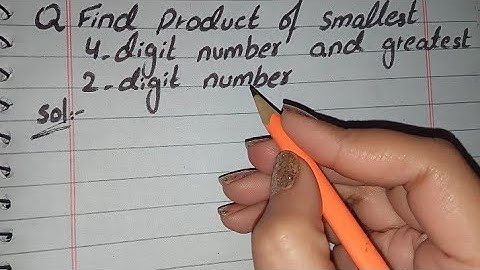 Q Find Product of smallest
4-digit number and greatest
2-digit number
Sol:-